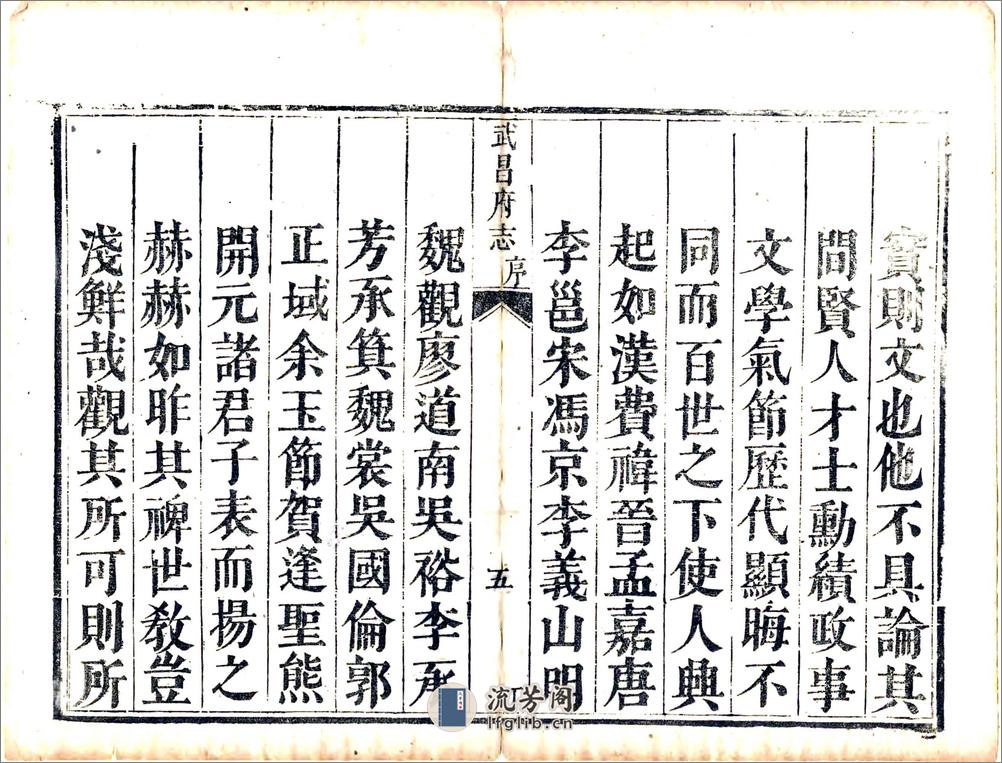 實則文也他不具論其
間賢人才士勳績政事
文學氣節歷代顯晦不
同而百世之下使人興
起如漢費禕晉孟嘉唐
李邕宋馮京李義山明
武昌府志 序 五
魏觀廖道南吳裕李承
芳承箕魏裳吳國倫郭
正域余玉節賀逢聖熊
開元諸君子表而揚之
赫赫如昨其裨世敎豈
淺鮮哉觀其所可則所
流芳阁
lfglib.cn